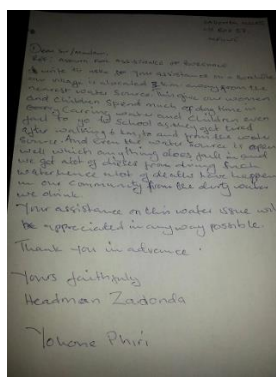 Dear Sir/madam
Ref: Asking for assistance to borehole
I write to seek for your assistance on a borehole
our village is located 3km away from the
nearest water source being our women
and children spend much of day time in
water and children even
fail to go to school as they get tired
after walking to and from the water
source. And even the water source is open
well which anything does fall in and
we get alot of disease from doing such
water hence alot of deaths have happen
in our community from the dirty water
we drink.
Your assistance on this water issue will
be appreciated in anyway possible.
Thank you in advance.
Yours faithfully
Headman Zadonda
Yohone Phiri